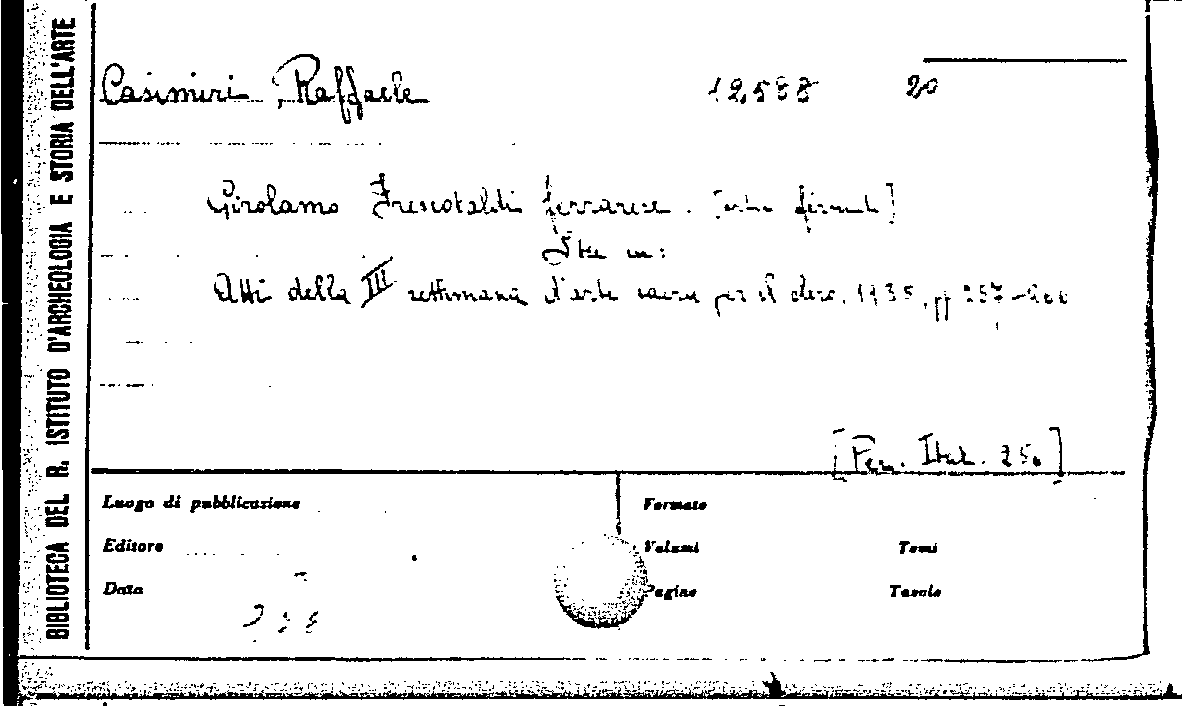 BIBLIOTECA DEL R. ISTITUTO D'ARCHEOLOGIA E STORIA DELL'ARTE
Casimiri, Raffaele 12588 20
Girolamo Frescobaldi ferrarese.
Sta in:
Atti della III settimana d'arte sacra per il clero, 1935, pp 257-
[Per. Ital. 250]
Luogo di pubblicazione Formato
Editore Volumi Tomi
Data Pagine Tavole